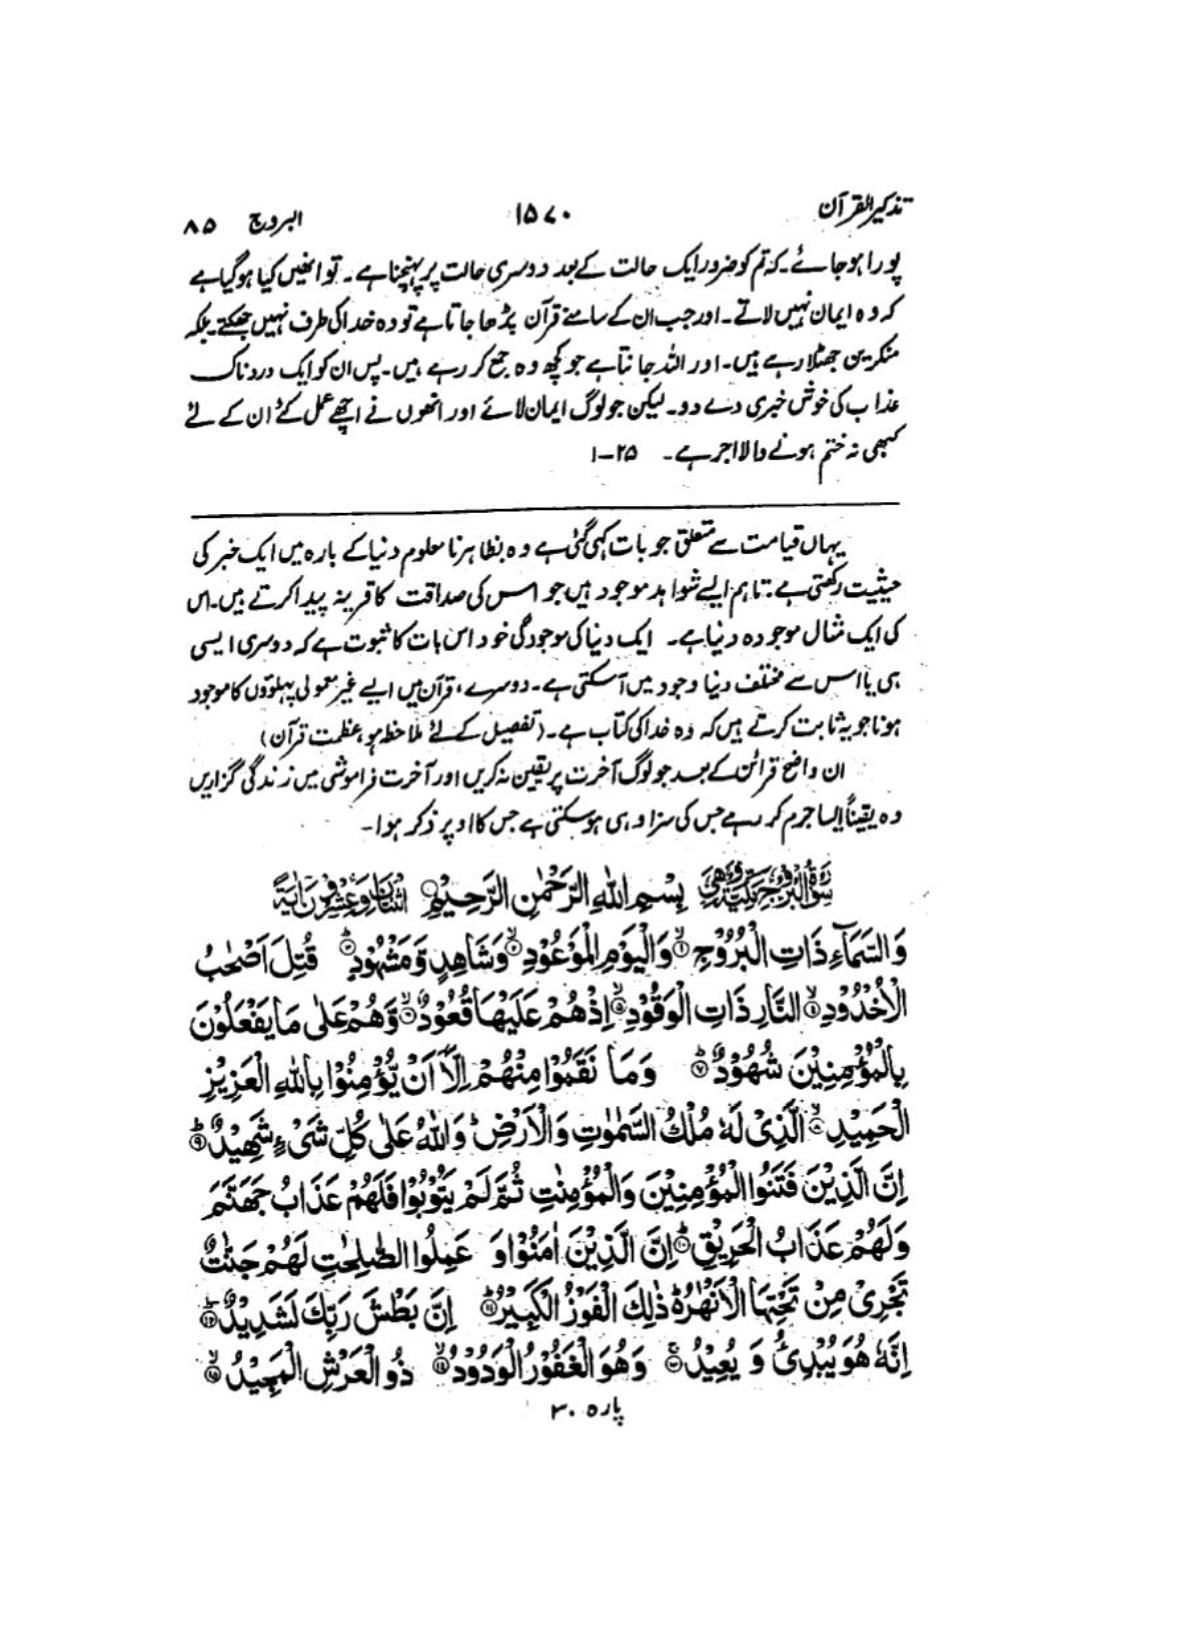 تذکیر القرآن ۱۵۷۰ البروج ۸۵
پورا ہو جائے۔ کہ تم کو ضرور ایک حالت کے بعد دوسری حالت پر پہنچنا ہے۔ تو انھیں کیا ہوگیا ہے
کہ وہ ایمان نہیں لاتے۔ اور جب ان کے سامنے قرآن پڑھا جاتا ہے تو وہ خدا کی طرف نہیں جھکتے۔ بلکہ
منکرین جھٹلا رہے ہیں۔ اور اللہ جانتا ہے جو کچھ وہ جمع کر رہے ہیں۔ پس ان کو ایک دردناک
عذاب کی خوش خبری دے دو۔ لیکن جو لوگ ایمان لائے اور انھوں نے اچھے عمل کئے ان کے لئے
کبھی نہ ختم ہونے والا اجر ہے۔ ۲۵-۱
یہاں قیامت سے متعلق جو بات کہی گئی ہے وہ بظاہر نامعلوم دنیا کے بارہ میں ایک خبر کی
حیثیت رکھتی ہے۔ تاہم ایسے شواہد موجود ہیں جو اس کی صداقت کا قرینہ پیدا کرتے ہیں۔ اس
کی ایک مثال موجودہ دنیا ہے۔ ایک دنیا کی موجودگی خود اس بات کا ثبوت ہے کہ دوسری ایسی
ہی یا اس سے مختلف دنیا وجود میں آسکتی ہے۔ دوسرے، قرآن میں ایسے غیر معمولی پہلوؤں کا موجود
ہونا جو یہ ثابت کرتے ہیں کہ وہ خدا کی کتاب ہے۔ (تفصیل کے لئے ملاحظہ ہو، عظمت قرآن)
ان واضح قرائن کے بعد جو لوگ آخرت پر یقین نہ کریں اور آخرت فراموشی میں زندگی گزاریں
وہ یقیناً ایسا جرم کر رہے جس کی سزا وہی ہوسکتی ہے جس کا اوپر ذکر ہوا۔
سُوْرَةُ الْبُرُوْجِ مَكِّيَّةٌ وَّهِيَ بِسْمِ اللهِ الرَّحْمٰنِ الرَّحِيْمِ اثْنَتَانِ وَعِشْرُوْنَ اٰيَةً
وَالسَّمَآءِ ذَاتِ الْبُرُوْجِ ۝۱ وَالْيَوْمِ الْمَوْعُوْدِ ۝۲ وَشَاهِدٍ وَّمَشْهُوْدٍ ۝۳ قُتِلَ اَصْحٰبُ
الْاُخْدُوْدِ ۝۴ النَّارِ ذَاتِ الْوَقُوْدِ ۝۵ اِذْ هُمْ عَلَيْهَا قُعُوْدٌ ۝۶ وَّهُمْ عَلٰى مَا يَفْعَلُوْنَ
بِالْمُؤْمِنِيْنَ شُهُوْدٌ ۝۷ وَمَا نَقَمُوْا مِنْهُمْ اِلَّآ اَنْ يُّؤْمِنُوْا بِاللهِ الْعَزِيْزِ
الْحَمِيْدِ ۝۸ الَّذِيْ لَهٗ مُلْكُ السَّمٰوٰتِ وَالْاَرْضِ ؕ وَاللهُ عَلٰى كُلِّ شَيْءٍ شَهِيْدٌ ۝۹
اِنَّ الَّذِيْنَ فَتَنُوا الْمُؤْمِنِيْنَ وَالْمُؤْمِنٰتِ ثُمَّ لَمْ يَتُوْبُوْا فَلَهُمْ عَذَابُ جَهَنَّمَ
وَلَهُمْ عَذَابُ الْحَرِيْقِ ۝۱۰ اِنَّ الَّذِيْنَ اٰمَنُوْا وَ عَمِلُوا الصّٰلِحٰتِ لَهُمْ جَنّٰتٌ
تَجْرِيْ مِنْ تَحْتِهَا الْاَنْهٰرُ ؕ ذٰلِكَ الْفَوْزُ الْكَبِيْرُ ۝۱۱ اِنَّ بَطْشَ رَبِّكَ لَشَدِيْدٌ ۝۱۲
اِنَّهٗ هُوَ يُبْدِئُ وَ يُعِيْدُ ۝۱۳ وَهُوَ الْغَفُوْرُ الْوَدُوْدُ ۝۱۴ ذُو الْعَرْشِ الْمَجِيْدُ ۝۱۵
پارہ ۳۰